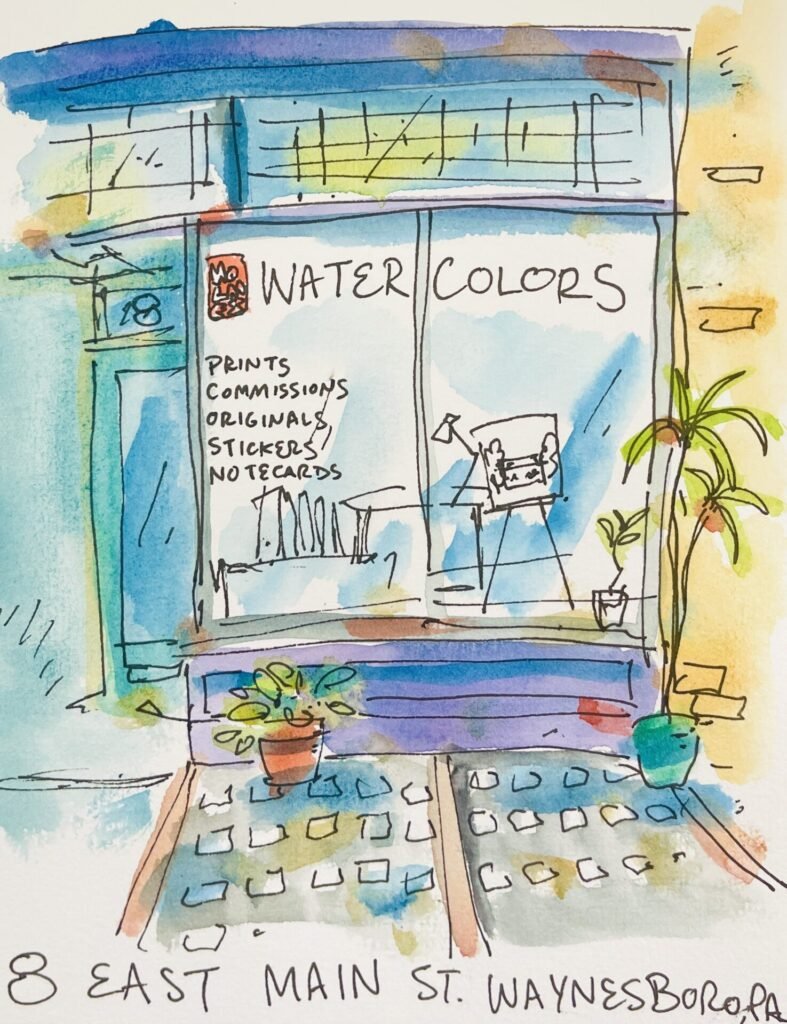 WATER COLORS
18
PRINTS
COMMISSIONS
ORIGINALS
STICKERS
NOTECARDS
8 EAST MAIN ST. WAYNESBORO, PA